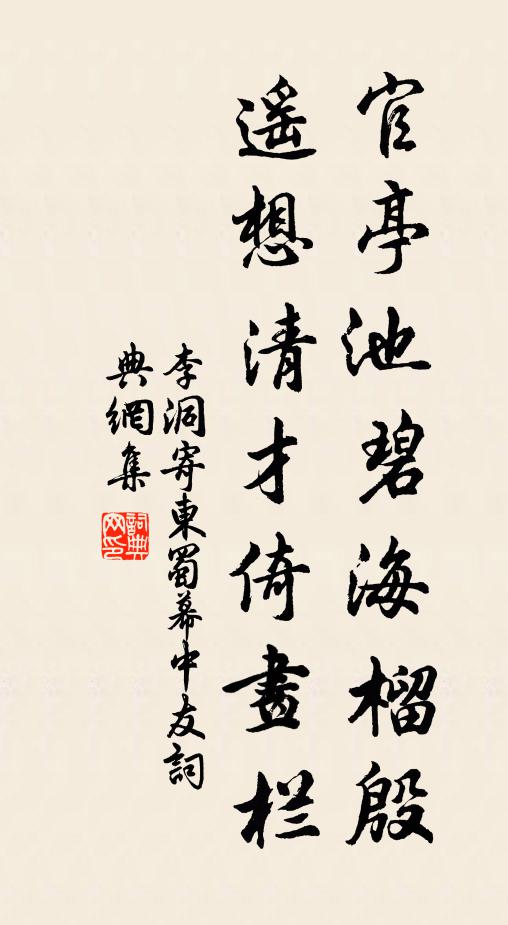 官亭池碧海榴殷
遥想清才倚畫栏
李洞寄東蜀幕中友詞
典網集
詞典
网印